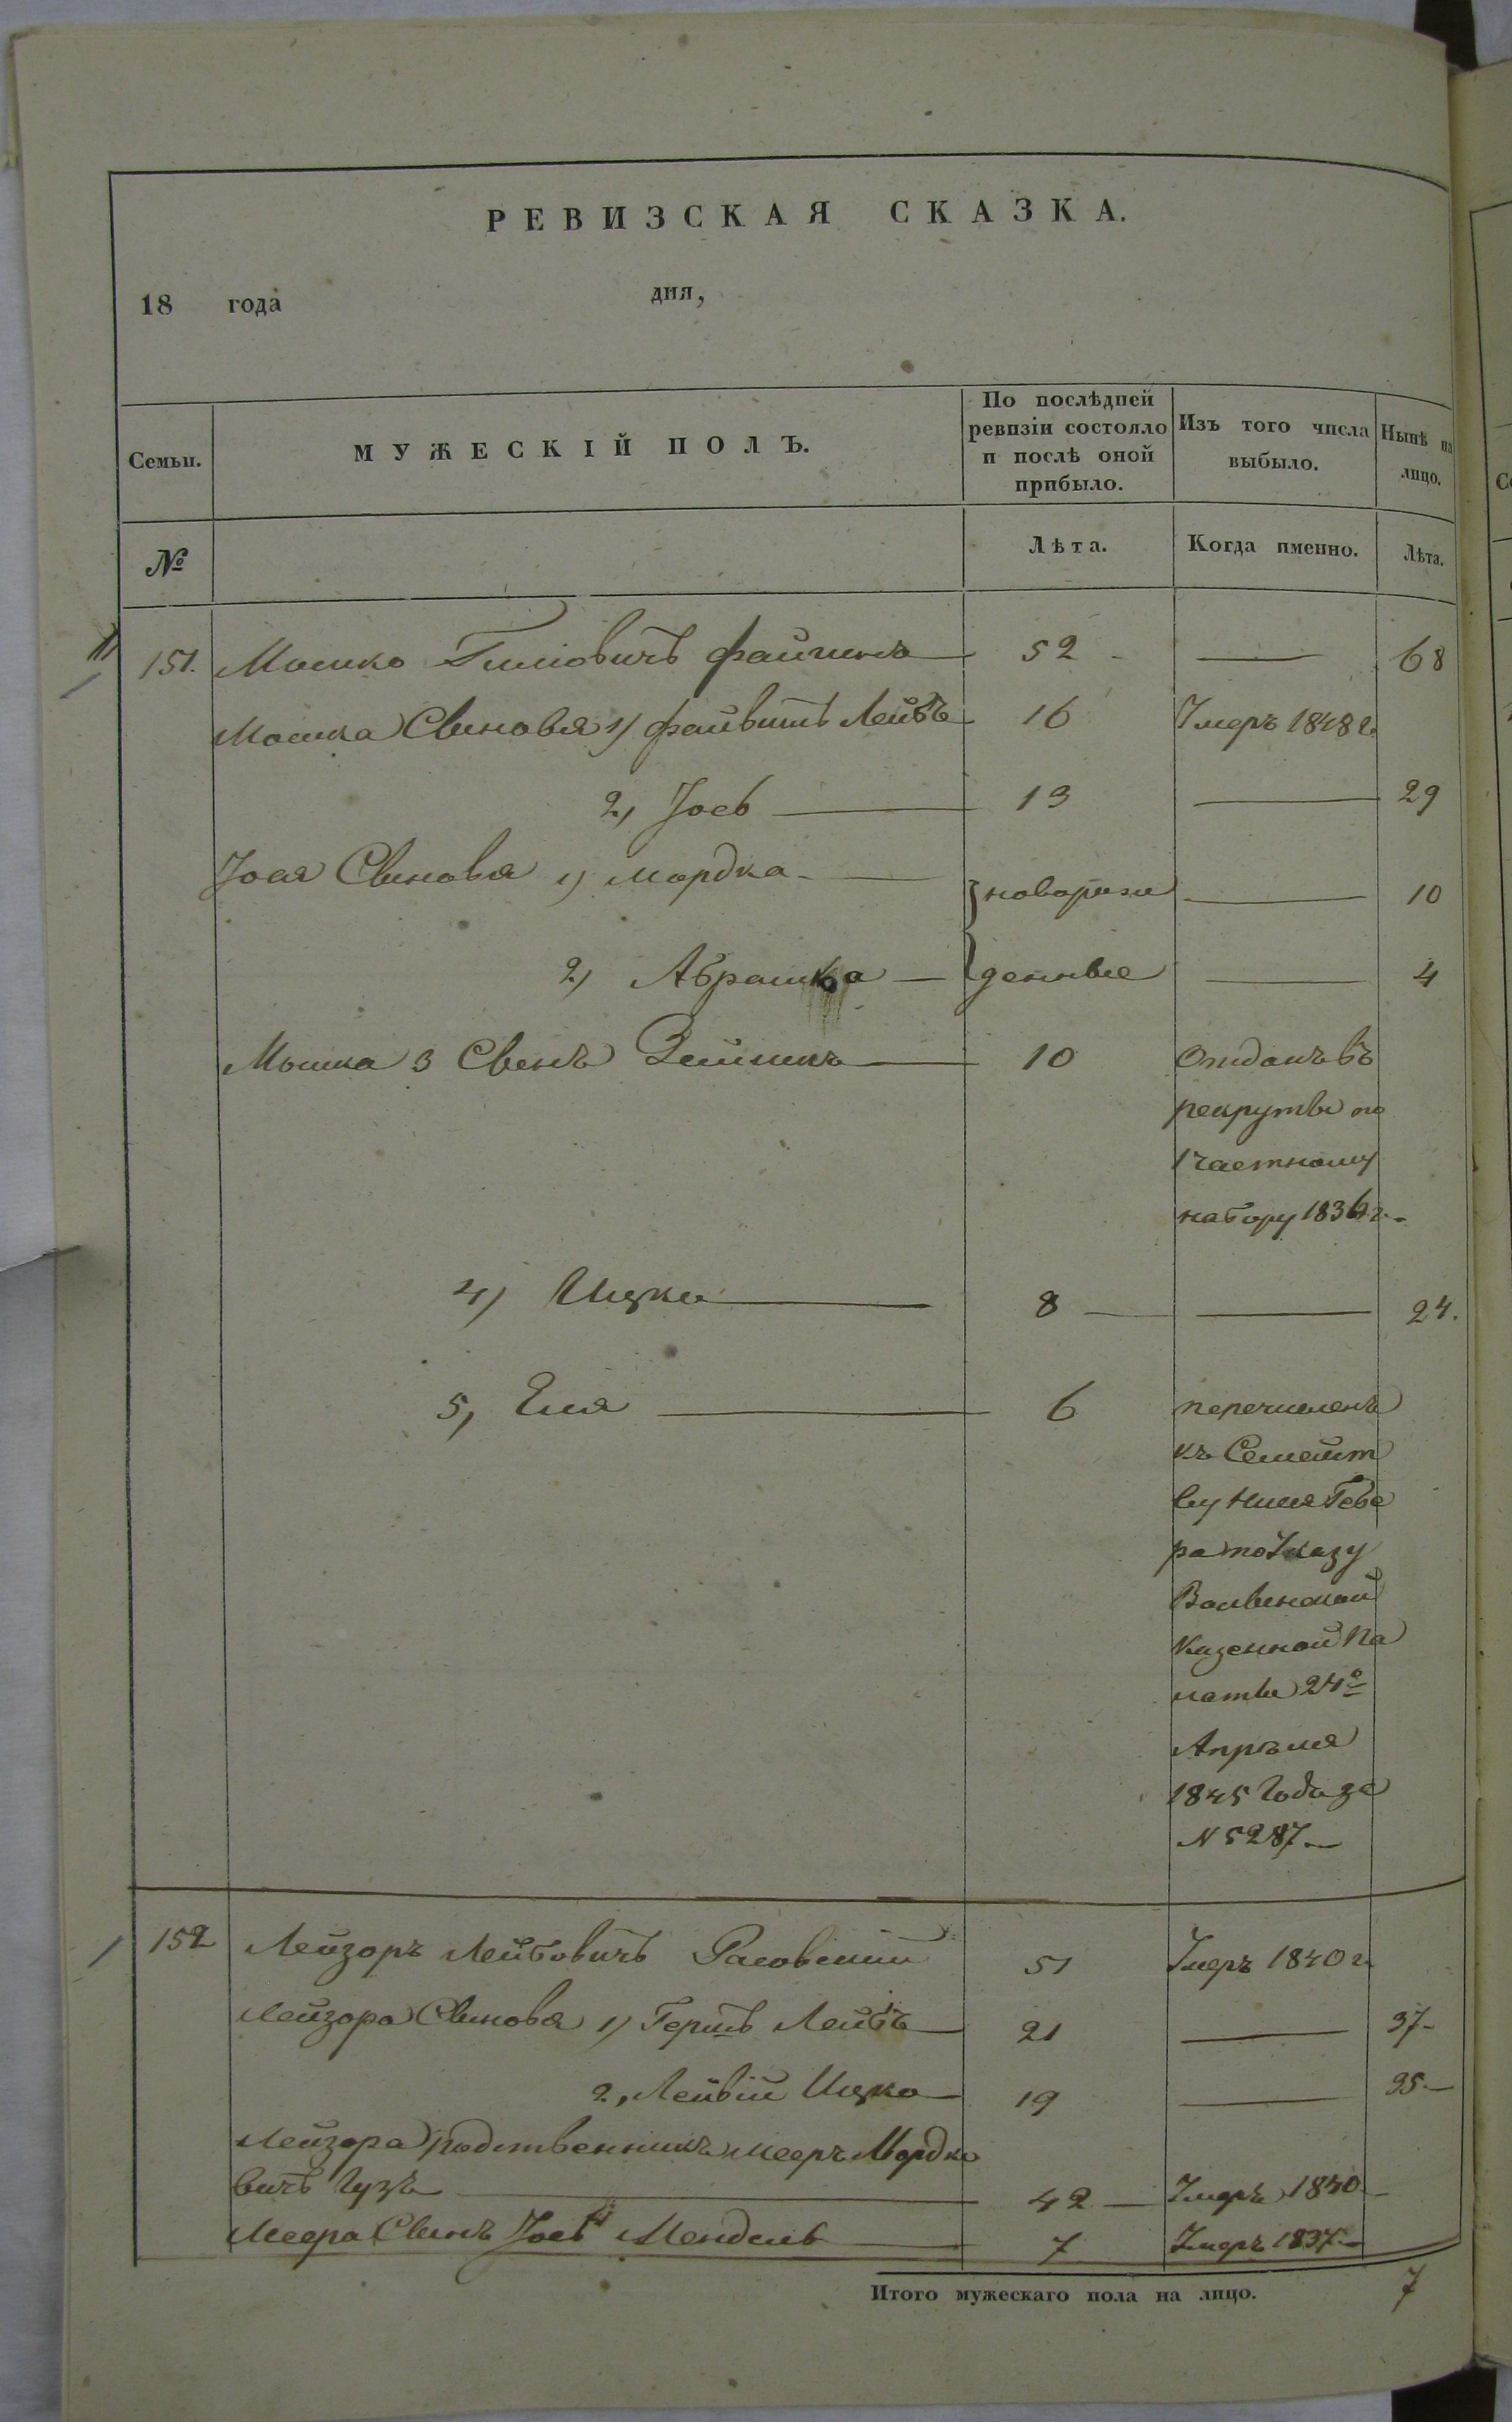 РЕВИЗСКАЯ СКАЗКА.
18 года дня,
Семьи. МУЖЕСКІЙ ПОЛЪ. По послѣдней ревизіи состояло и послѣ оной прибыло. Изъ того числа выбыло. Нынѣ на лицо.
№ Лѣта. Когда именно. Лѣта.
151. Мошко файшенъ 52 — 68
Мошка Сыновья 1) файвишъ Лейбъ 16 Умеръ 1848 г.
2, Іось 13 — 29
Іося Сыновья 1) мордка новорож 10
2, Абрашка денные 4
Мошка 3 Сынъ Зейликъ 10 Отданъ въ
рекруты по
1 частному
набору 1836 г.
4) Ицко 8 — 24.
5, Еля 6 перечисленъ
къ Семейст
ву
ра по Указу
Волынской
Казенной Па
латы 24º
Апрѣля
1845 Года за
N 5287
152 Лейзоръ Лейбовичъ 51 Умеръ 1840 г.
Лейзора Сыновья 1) Гершъ Лейбъ 21 — 37
2, Ицко 19 — 35
Лейзора родственникъ мееръ Мордко
вичъ Гузъ 42 — Умеръ 1840
Меера Сынъ Іось Мендель 7 Умеръ 1837
Итого мужескаго пола на лицо. 7